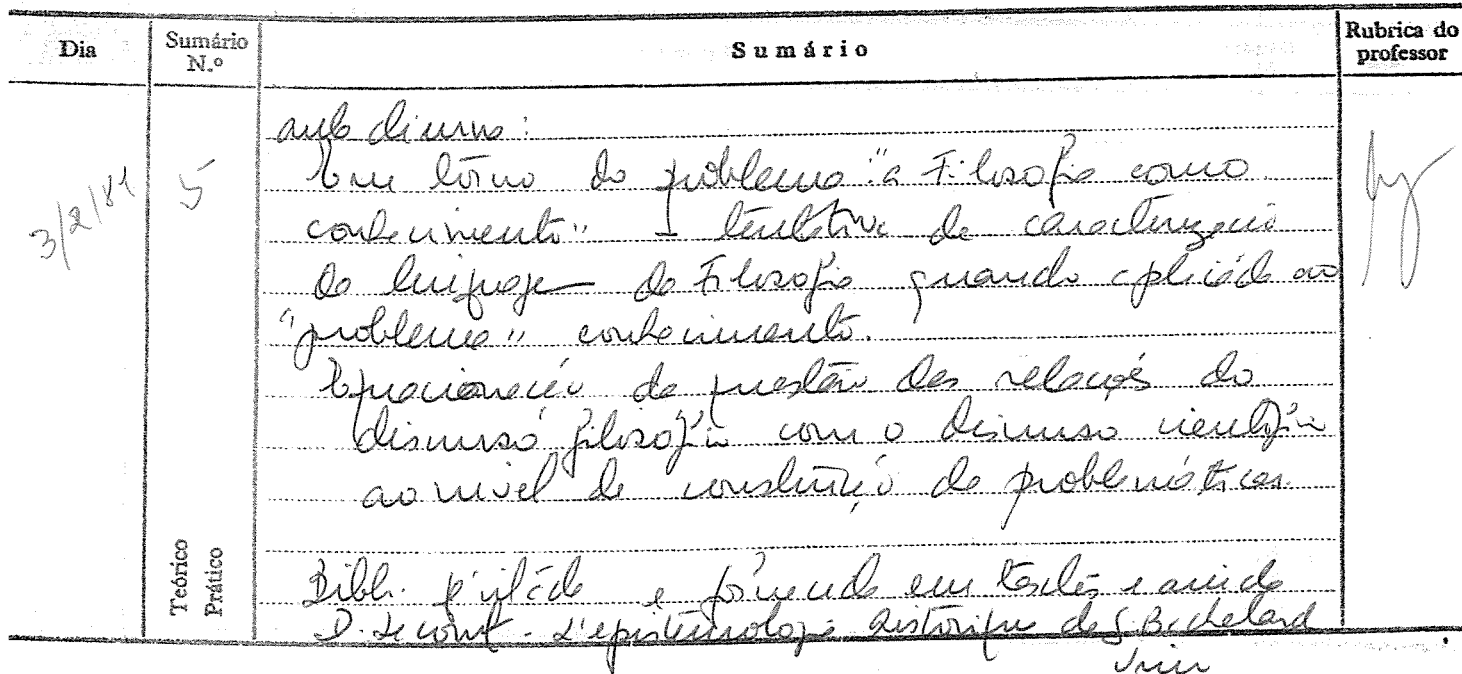 Dia
Sumário N.º
Sumário
Rubrica do professor
3/2/81
5
aula diurna:
Em tôrno do problema "a Filosofia como
conhecimento" tentativa de caracterização
da linguagem da Filosofia quando aplicada ao
"problema" conhecimento.
Equacionação da questão das relações do
discurso filosófico com o discurso científico
ao nível de construção de problemáticas.
Teórico
Prático
Bibl. já citada e fornecida em textos e ainda
D. Lecourt - L'epistemologie historique de G. Bachelard
Vrin